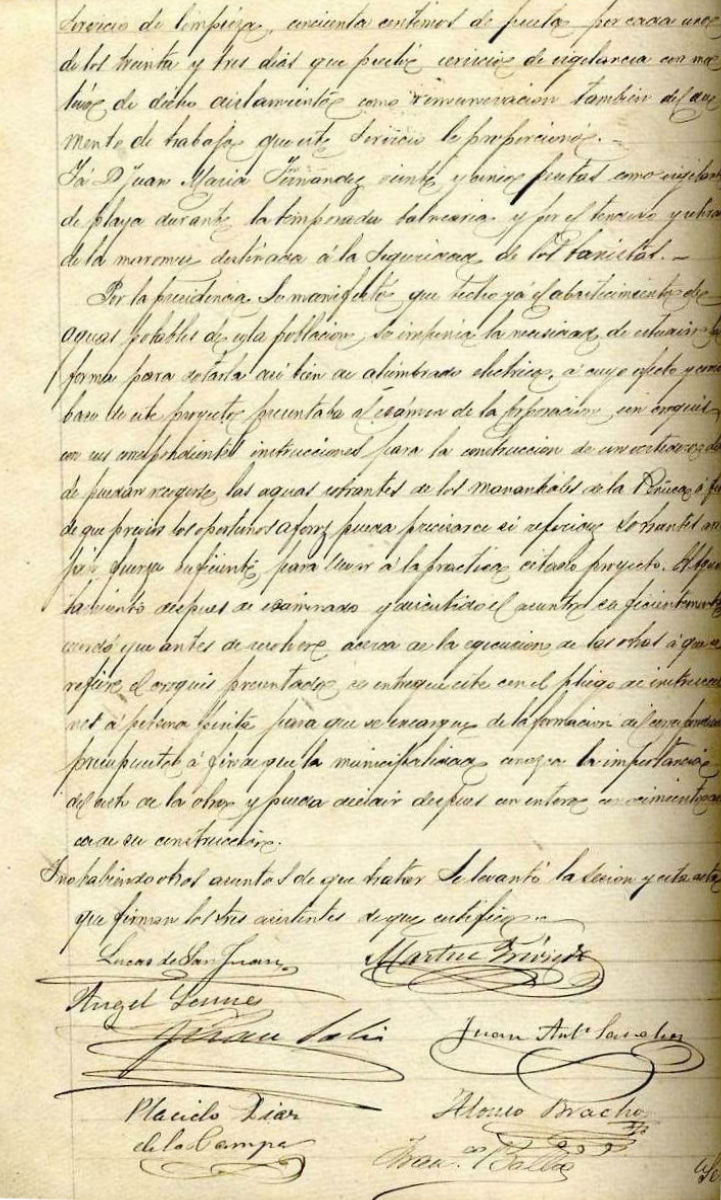 servicio de limpieza, cincuenta centimos de peseta por cada uno
de los treinta y tres dias que prestó servicio de vigilancia con mo
tivo de dicho aislamiento como remuneracion tambien del au
mento de trabajo que este servicio le proporcionó.
Y á D. Juan Maria Fernandez veinte y cinco pesetas como vigilante
de playa durante la temporada balnearia y por el tendido y retira
de la maroma destinada á la seguridad de los bañistas.
Por la presidencia se manifestó que hecho yá el abastecimiento de
aguas potables de esta poblacion, se imponia la necesidad de estudiar la
forma para dotarla asi bien de alumbrado electrico, á cuyo efecto y como
base de este proyecto presentaba al exámen de la Corporacion, un croquis
con sus correspondientes instrucciones para la construccion de un
de puedan recogerse las aguas sobrantes de los manantiales de la á fin
de que previos los oportunos aforos pueda precisarse si referidos sobrantes
fuerza suficiente para llevar á la practica citado proyecto. El Ayun
tamiento despues de examinado y discutido el asunto suficientemente
acordó que antes de resolver acerca de la egecucion de las obras á que se
refiere el croquis presentado, se entregue este con el pliego de instruccio
nes á persona perita para que se encargue de la formacion del correspondiente
presupuesto á fin de que la municipalidad conozca la importancia
del coste de la obra y pueda decidir despues con entero conocimiento acer
ca de su construccion.
Y no habiendo otros asuntos de que tratar se levantó la sesion y esta acta
que firman los tres asistentes de que certifico.
Lucas de San Juan Martin
Angel
Juan Antº
Placido Diaz Alonso Bracho
de la Campa
Franco.